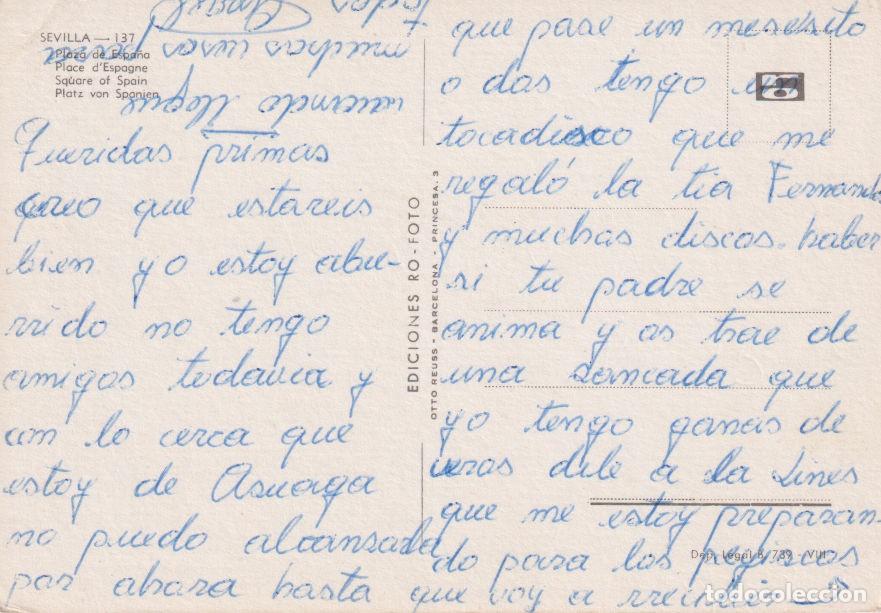 SEVILLA — 137
Plaza de España
Place d'Espagne
Square of Spain
Platz von Spanien
Queridas primas
creo que estareis
bien y o estoy abu-
rrido no tengo
amigos todavia y
con lo cerca que
estoy de Asuaga
no puedo alcansada
por ahara hasta
que pase un mesesito
o dos tengo un
tocadisco que me
regaló la tia Fernanda
y muchas discos. haber
si tu padre se
anima y os trae de
una Lancada que
yo tengo ganas de
veros dile a la Lines
que me estoy preparan-
do para los
que voy a
muchos besos para
todos
EDICIONES RO-FOTO
OTTO REUSS - BARCELONA - PRINCESA, 3
Dep. Legal B. 739 - VIII
todocoleccion